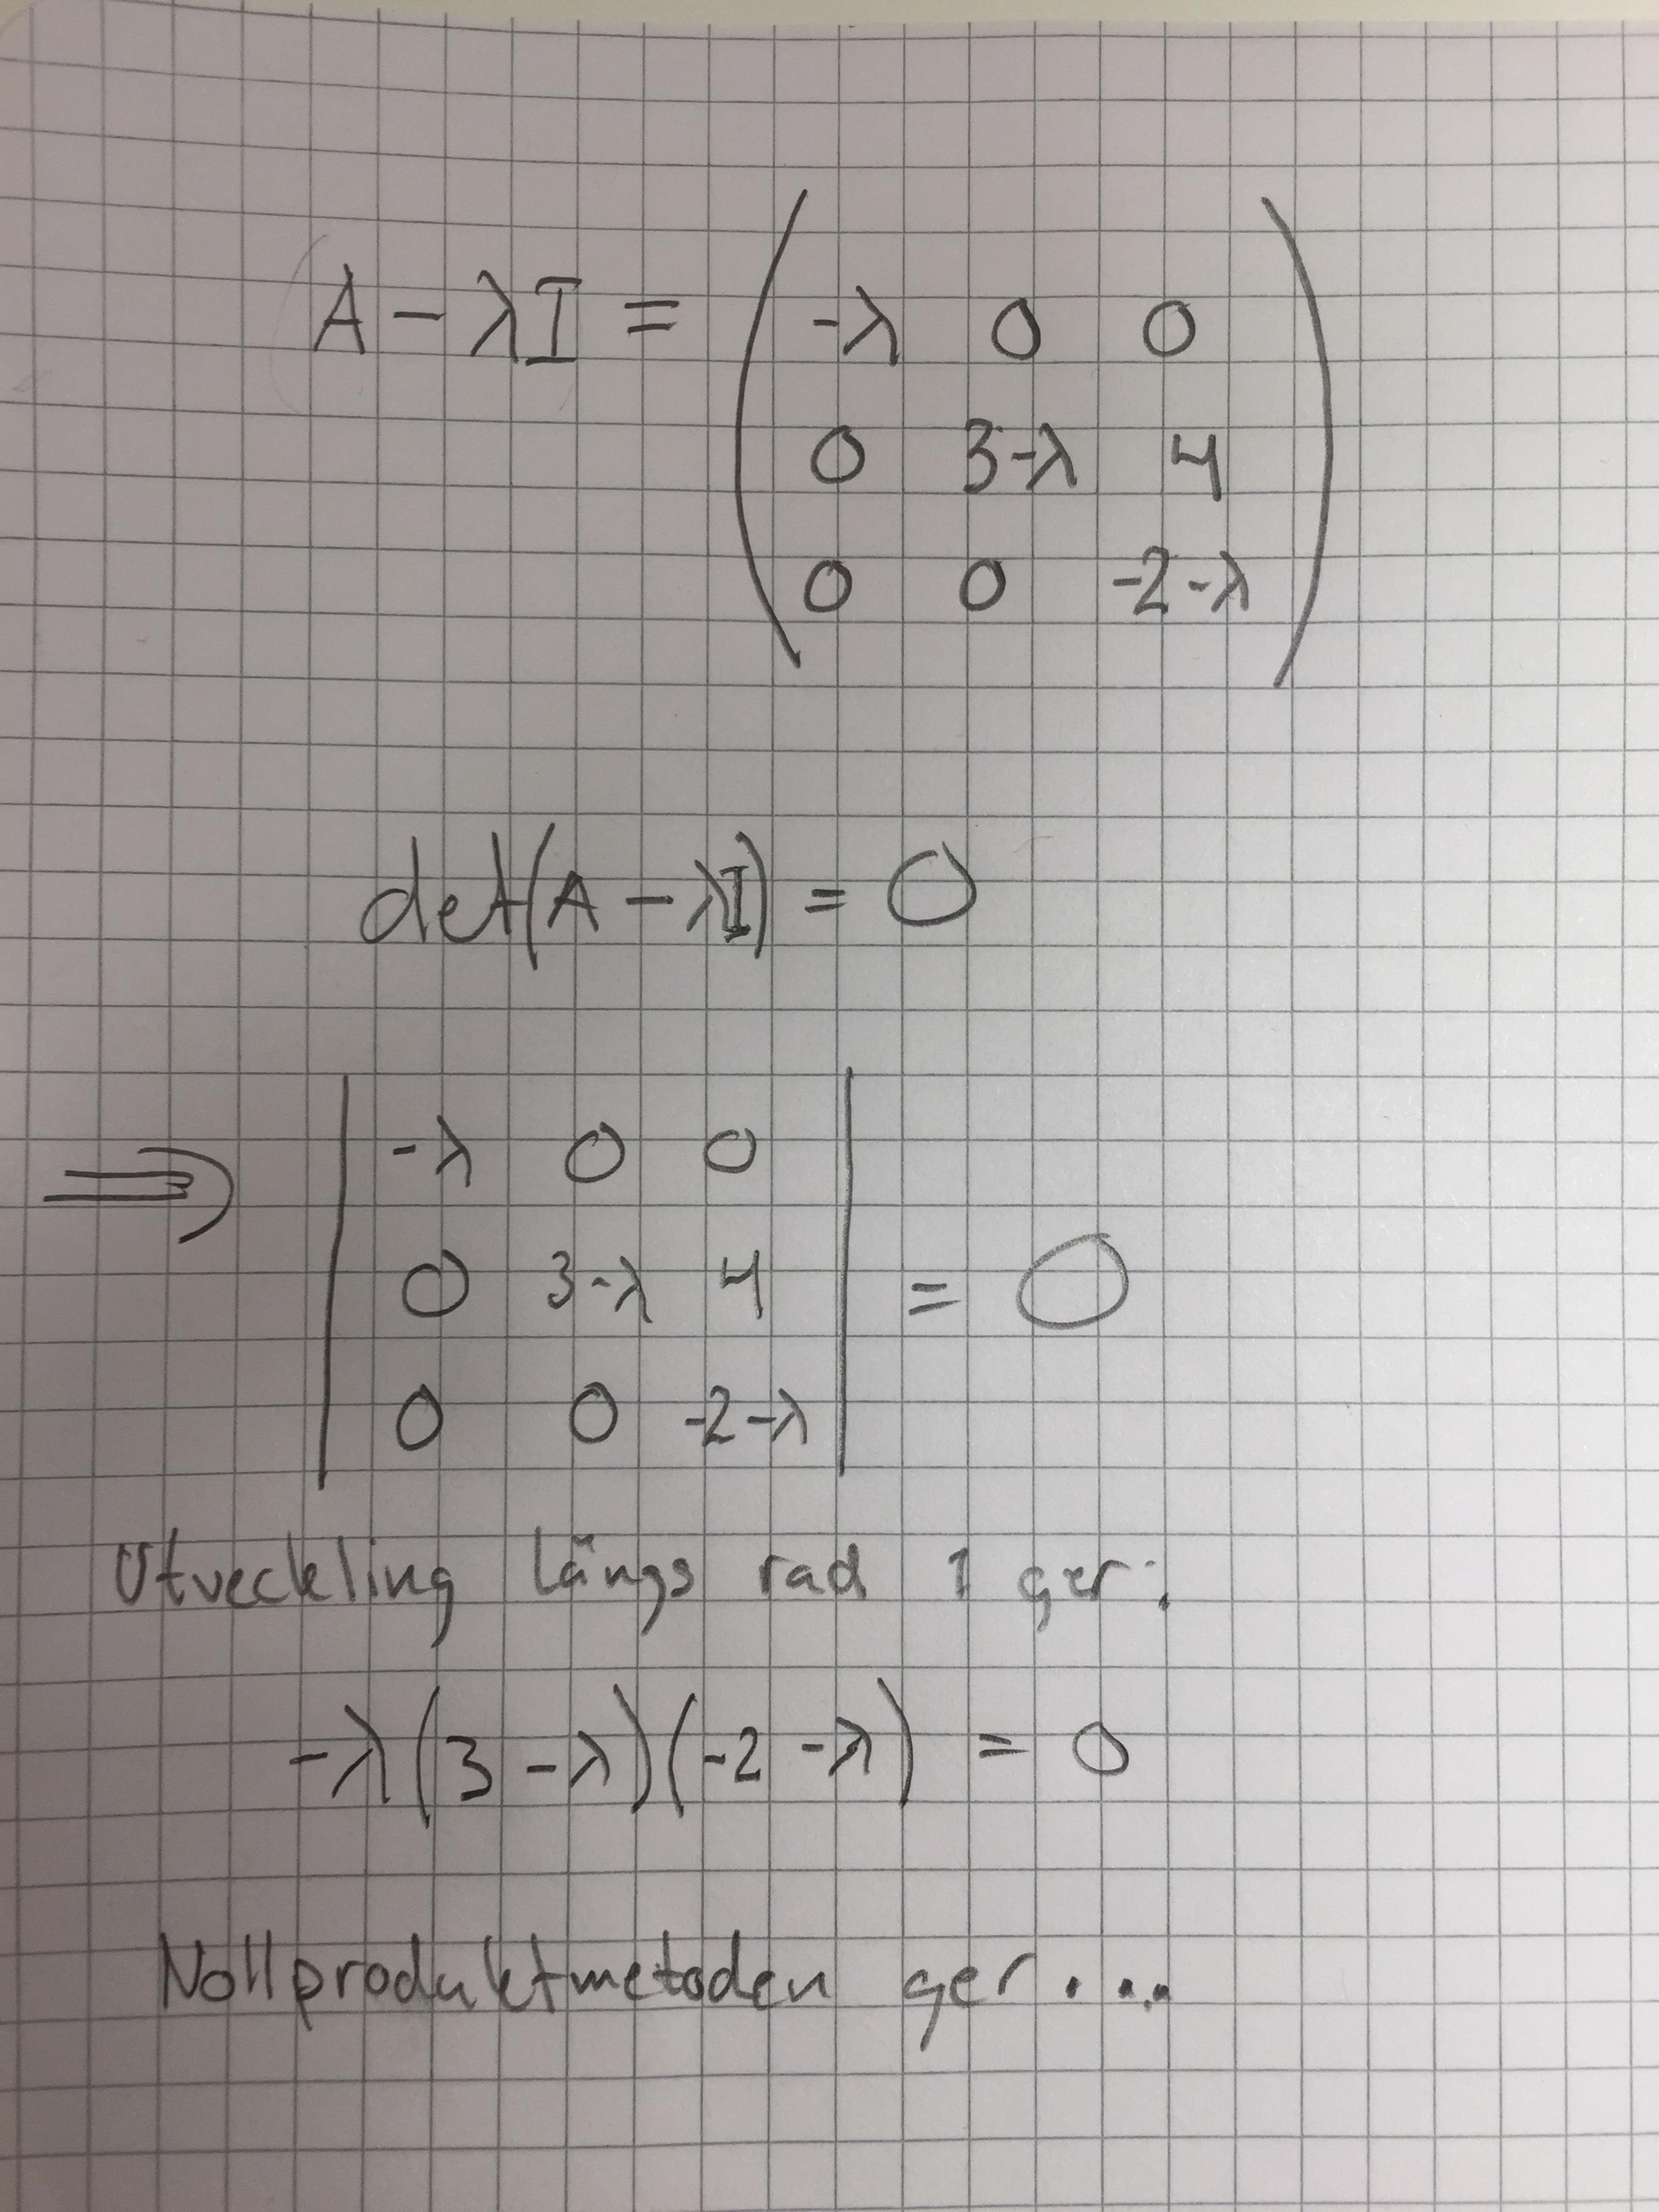 A - λI = ( -λ 0 0
0 3-λ 4
0 0 -2-λ )
det(A - λI) = 0
⇒ | -λ 0 0
0 3-λ 4 | = 0
0 0 -2-λ
Utveckling längs rad 1 ger:
-λ(3-λ)(-2-λ) = 0
Nollproduktmetoden ger....